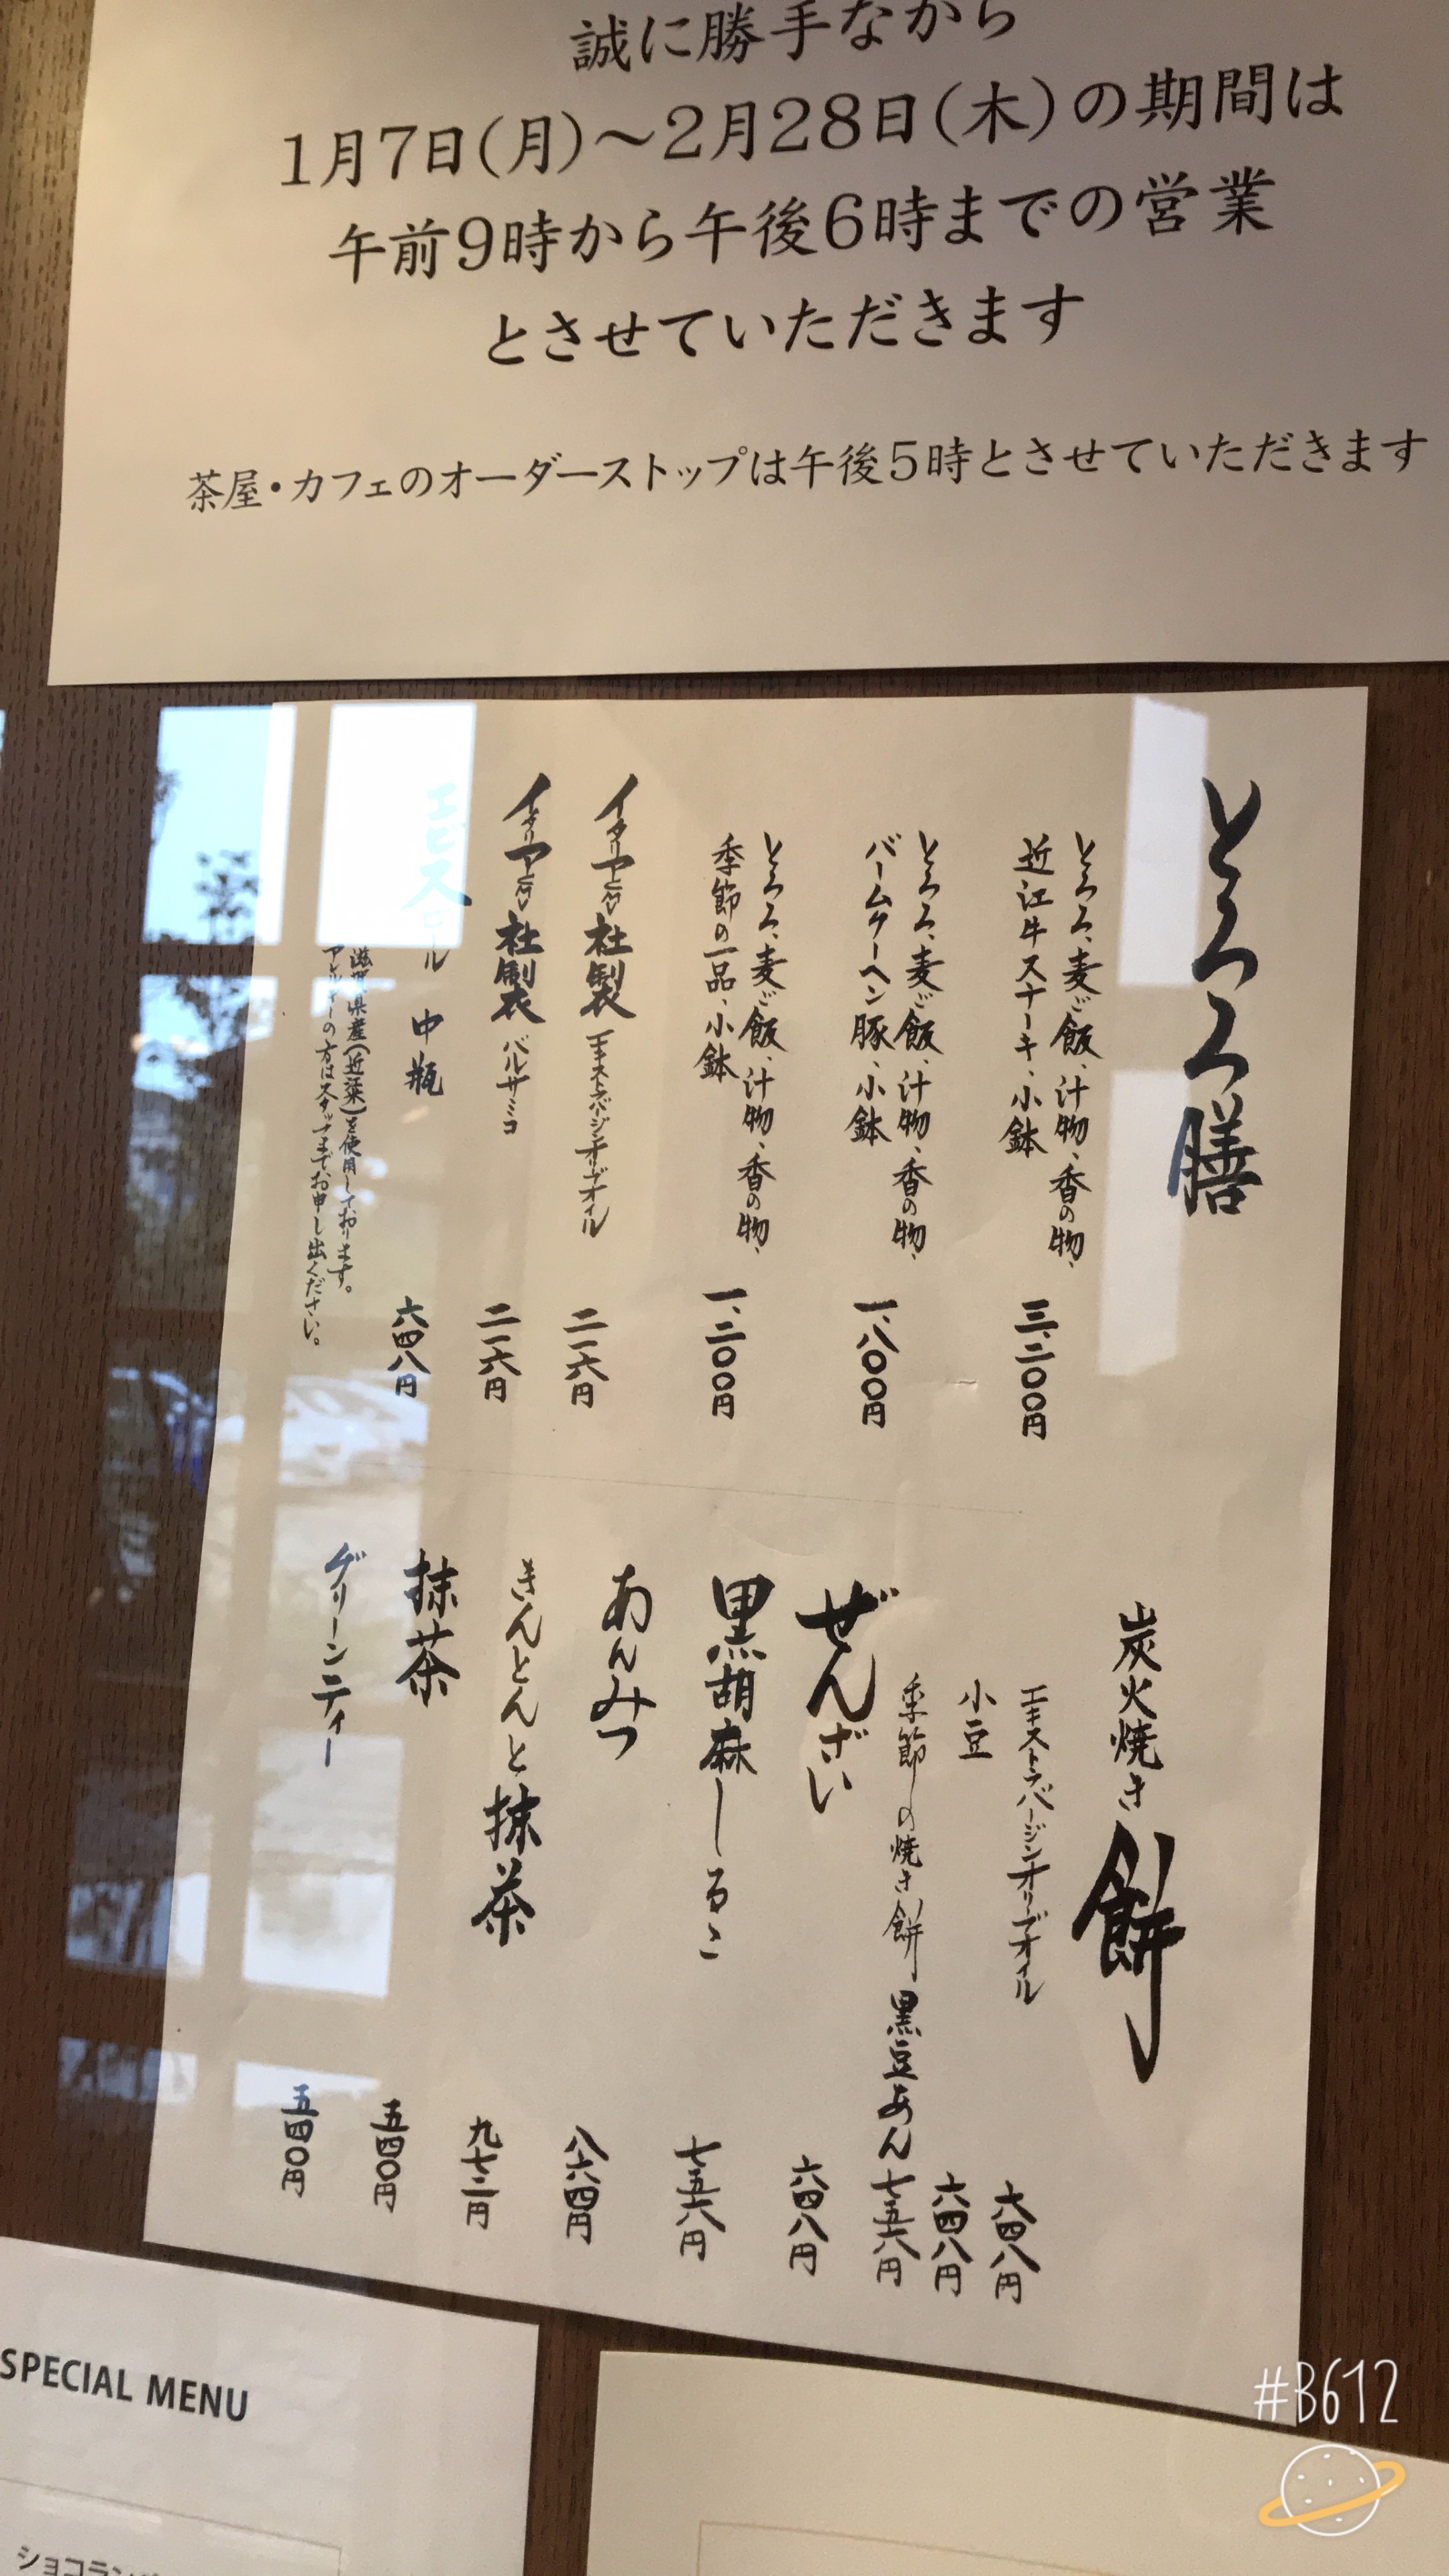 誠に勝手ながら
1月7日(月)～2月28日(木)の期間は
午前9時から午後6時までの営業
とさせていただきます
茶屋・カフェのオーダーストップは午後5時とさせていただきます
とろろ膳
とろろ、麦ご飯、汁物、香の物、
近江牛ステーキ、小鉢
三、二〇〇円
とろろ、麦ご飯、汁物、香の物、
バームクーヘン豚、小鉢
一、八〇〇円
とろろ、麦ご飯、汁物、香の物、
季節の一品、小鉢
一、二〇〇円
社製 エキストラバージンオリーブオイル
二一六円
社製 バルサミコ
二一六円
エビスビール 中瓶
六四八円
滋賀県産(近江米)を使用しております。
アレルギーの方はスタッフまでお申し出ください。
炭火焼き餅
エキストラバージンオリーブオイル
六四八円
小豆
六四八円
季節の焼き餅 黒豆あん
七五六円
ぜんざい
六四八円
黒胡麻しるこ
七五六円
あんみつ
八六四円
きんとんと抹茶
九七二円
抹茶
五四〇円
グリーンティー
五四〇円
SPECIAL MENU
#B612